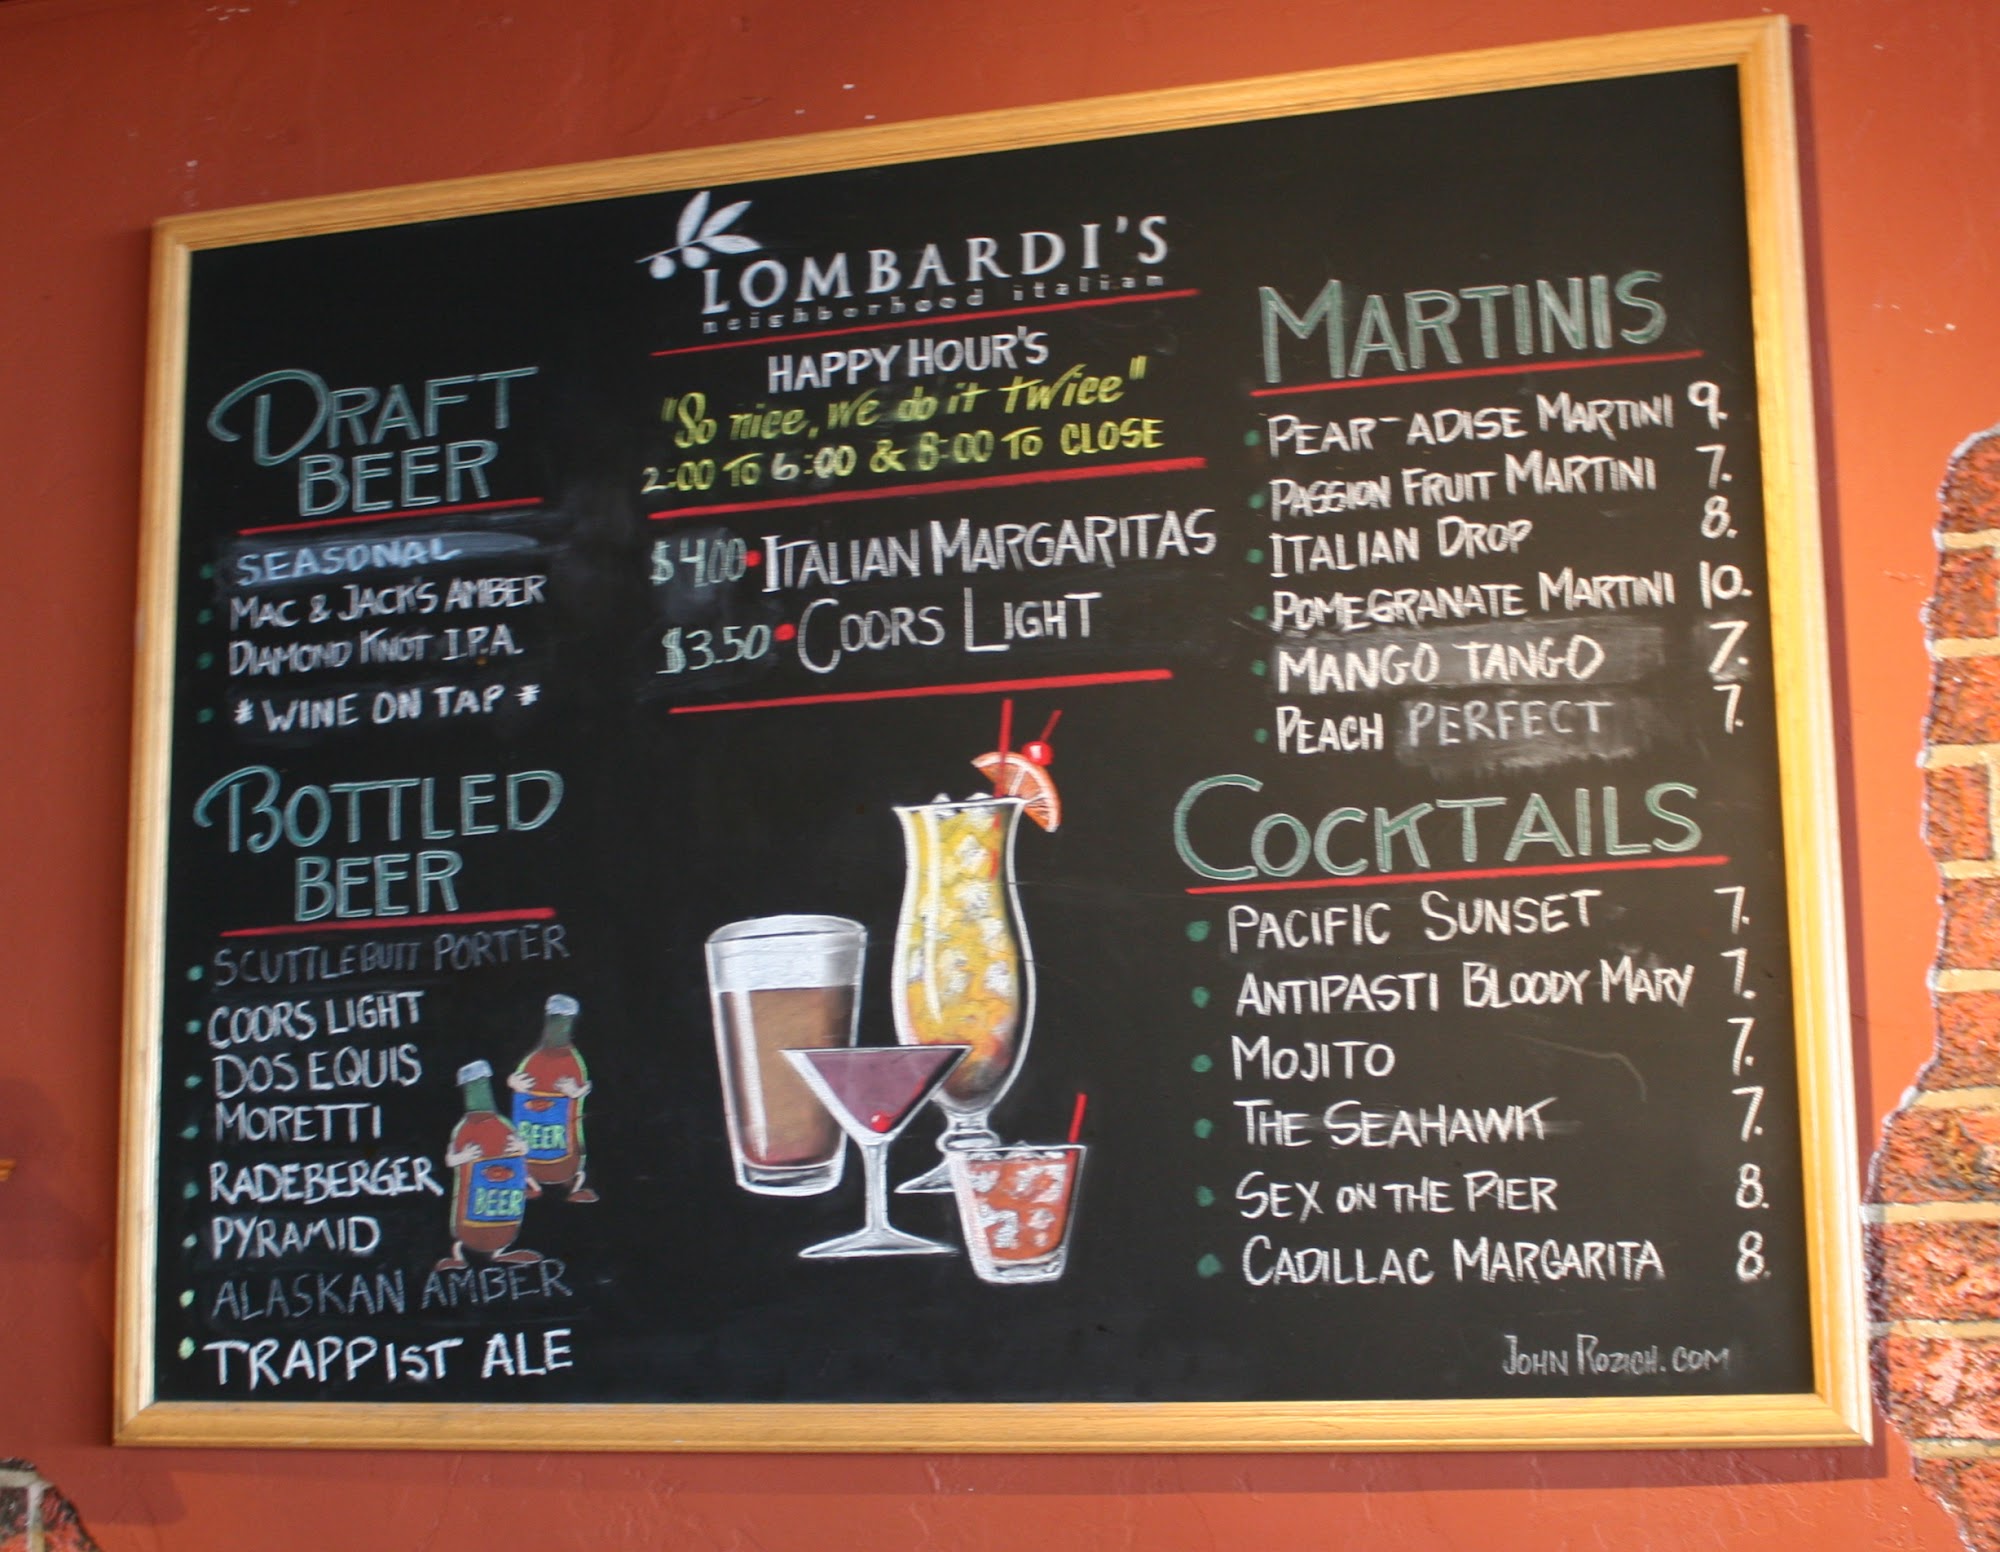 LOMBARDI'S
neighborhood italian
HAPPY HOUR'S
"So nice, we do it twice"
2:00 TO 6:00 & 8:00 TO CLOSE
$4.00 • ITALIAN MARGARITAS
$3.50 • COORS LIGHT
DRAFT
BEER
• SEASONAL
• MAC & JACK'S AMBER
• DIAMOND KNOT I.P.A.
• * WINE ON TAP *
BOTTLED
BEER
• SCUTTLEBUTT PORTER
• COORS LIGHT
• DOS EQUIS
• MORETTI
• RADEBERGER
• PYRAMID
• ALASKAN AMBER
• TRAPPIST ALE
BEER
BEER
MARTINIS
• PEAR-ADISE MARTINI 9.
• PASSION FRUIT MARTINI 7.
• ITALIAN DROP 8.
• POMEGRANATE MARTINI 10.
• MANGO TANGO 7.
• PEACH PERFECT 7.
COCKTAILS
• PACIFIC SUNSET 7.
• ANTIPASTI BLOODY MARY 7.
• MOJITO 7.
• THE SEAHAWK 7.
• SEX ON THE PIER 8.
• CADILLAC MARGARITA 8.
JOHN ROZICH.COM